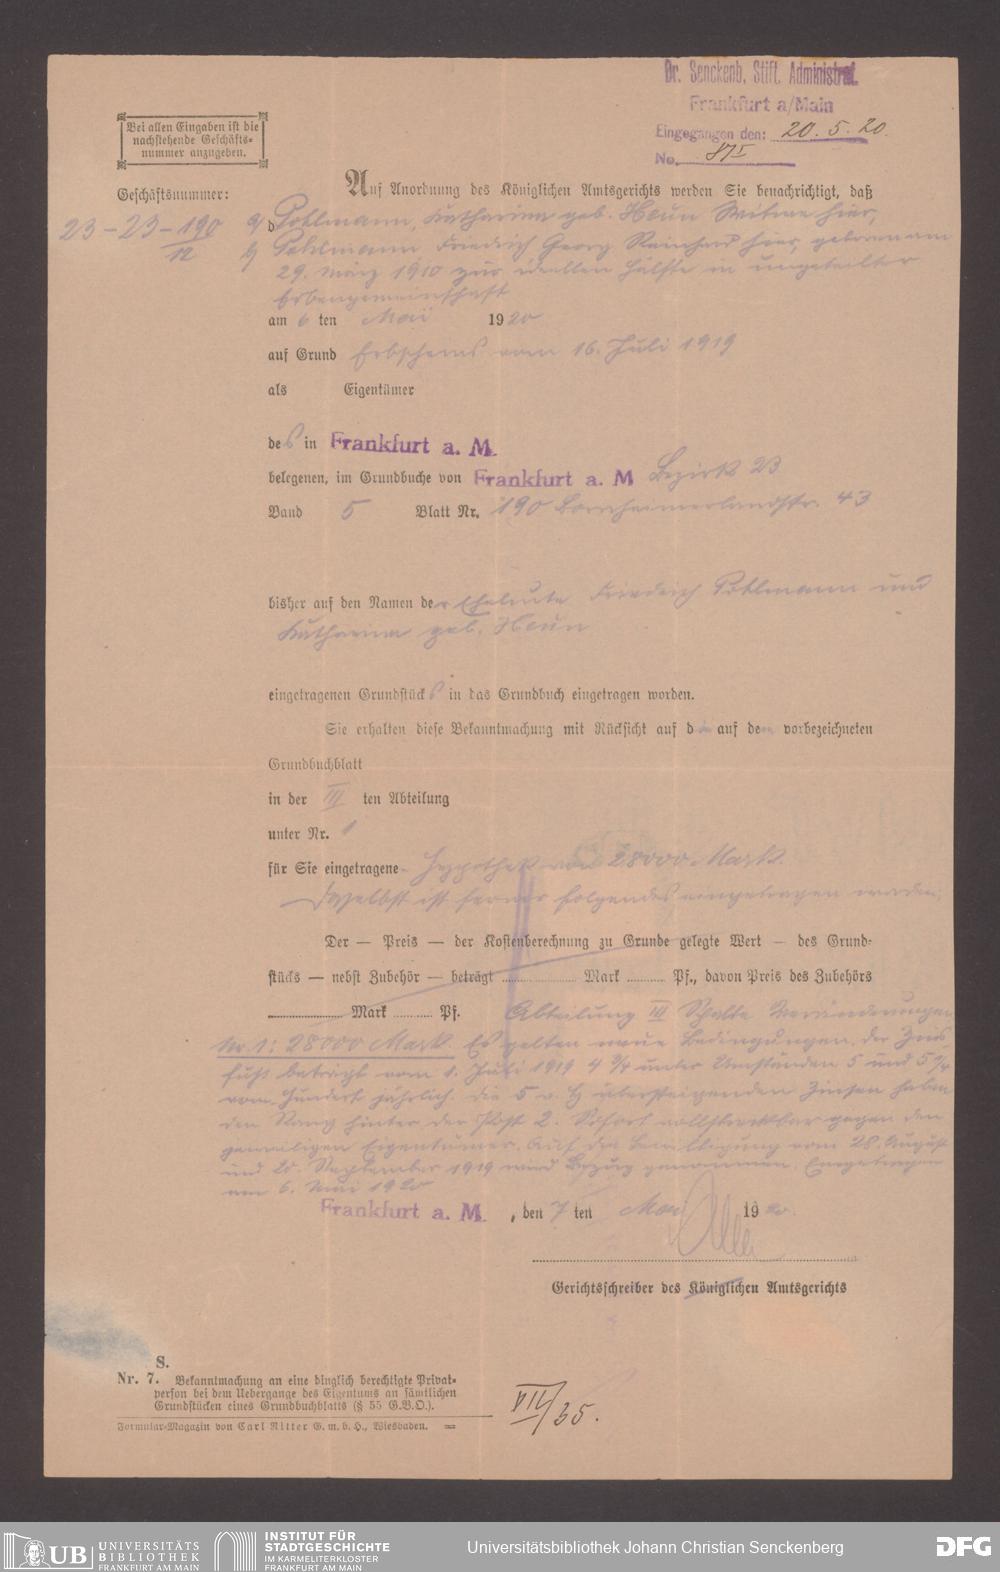 Dr. Senckenb. Stift. Administrat.
Frankfurt a/Main
Eingegangen den: 20. 5. 20.
No. 87I
Bei allen Eingaben ist die
nachstehende Geschäfts-
nummer anzugeben.
Geschäftsnummer:
23-23-190
12
Auf Anordnung des Königlichen Amtsgerichts werden Sie benachrichtigt, daß
a) Pohlmann, Katharina geb. Heun Witwe hier,
b) Pohlmann Friedrich Georg Reinhard hier, geboren am
29. März 1910 zur ideellen Hälfte in ungeteilter
Erbengemeinschaft
am 6 ten Mai 1920
auf Grund Erbscheins vom 16. Juli 1919
als Eigentümer
des in Frankfurt a. M.
belegenen, im Grundbuche von Frankfurt a. M Bezirk 23
Band 5 Blatt Nr. 190 Bornheimerlandstr. 43
bisher auf den Namen der Eheleute Friedrich Pohlmann und
Katharina geb. Heun
eingetragenen Grundstücks in das Grundbuch eingetragen worden.
Sie erhalten diese Bekanntmachung mit Rücksicht auf die auf dem vorbezeichneten
Grundbuchblatt
in der III ten Abteilung
unter Nr. 1
für Sie eingetragene Hypothek von 28000 Mark.
Daselbst ist ferner folgendes eingetragen worden:
Der — Preis — der Kostenberechnung zu Grunde gelegte Wert — des Grund-
stücks — nebst Zubehör — beträgt Mark Pf., davon Preis des Zubehörs
Mark Pf. Abteilung III Spalte Veränderungen
Nr. 1: 28000 Mark. Es gelten neue Bedingungen. Der Zins
fuß beträgt vom 1. Juli 1919 4 3/4 unter Umständen 5 und 5 1/4
vom Hundert jährlich. Die 5 v. H übersteigenden Zinsen haben
den Rang hinter der Post 2. Sofort vollstreckbar gegen den
jeweiligen Eigentümer. Auf die Bewilligung vom 28. August
und 25. September 1919 wird Bezug genommen. Eingetragen
am 6. Mai 1920
Frankfurt a. M. , den 7 ten Mai 1920.
Gerichtsschreiber des Königlichen Amtsgerichts
S.
Nr. 7. Bekanntmachung an eine dinglich berechtigte Privat-
person bei dem Uebergange des Eigentums an sämtlichen
Grundstücken eines Grundbuchblatts (§ 55 G.B.O.).
Formular-Magazin von Carl Ritter G. m. b. H., Wiesbaden.
VII/35.
UB UNIVERSITÄTS
BIBLIOTHEK
FRANKFURT AM MAIN
INSTITUT FÜR
STADTGESCHICHTE
IM KARMELITERKLOSTER
FRANKFURT AM MAIN
Universitätsbibliothek Johann Christian Senckenberg
DFG